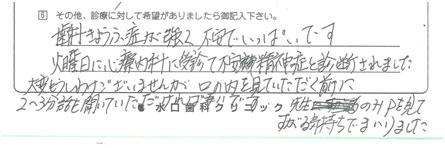 5 その他、診療に対して希望がありましたら御記入下さい。
歯科きょうふ症なに強く不安でいっぱいです
火曜日に心療内科に受診て不安神経症と診断されました
大変もうしわけございませんが口の内を見ていただく前に
2〜3分話を聞いていただければ幸いです
水口歯科クリニック 先生のHPを見て
すがる気持ちでまいりました